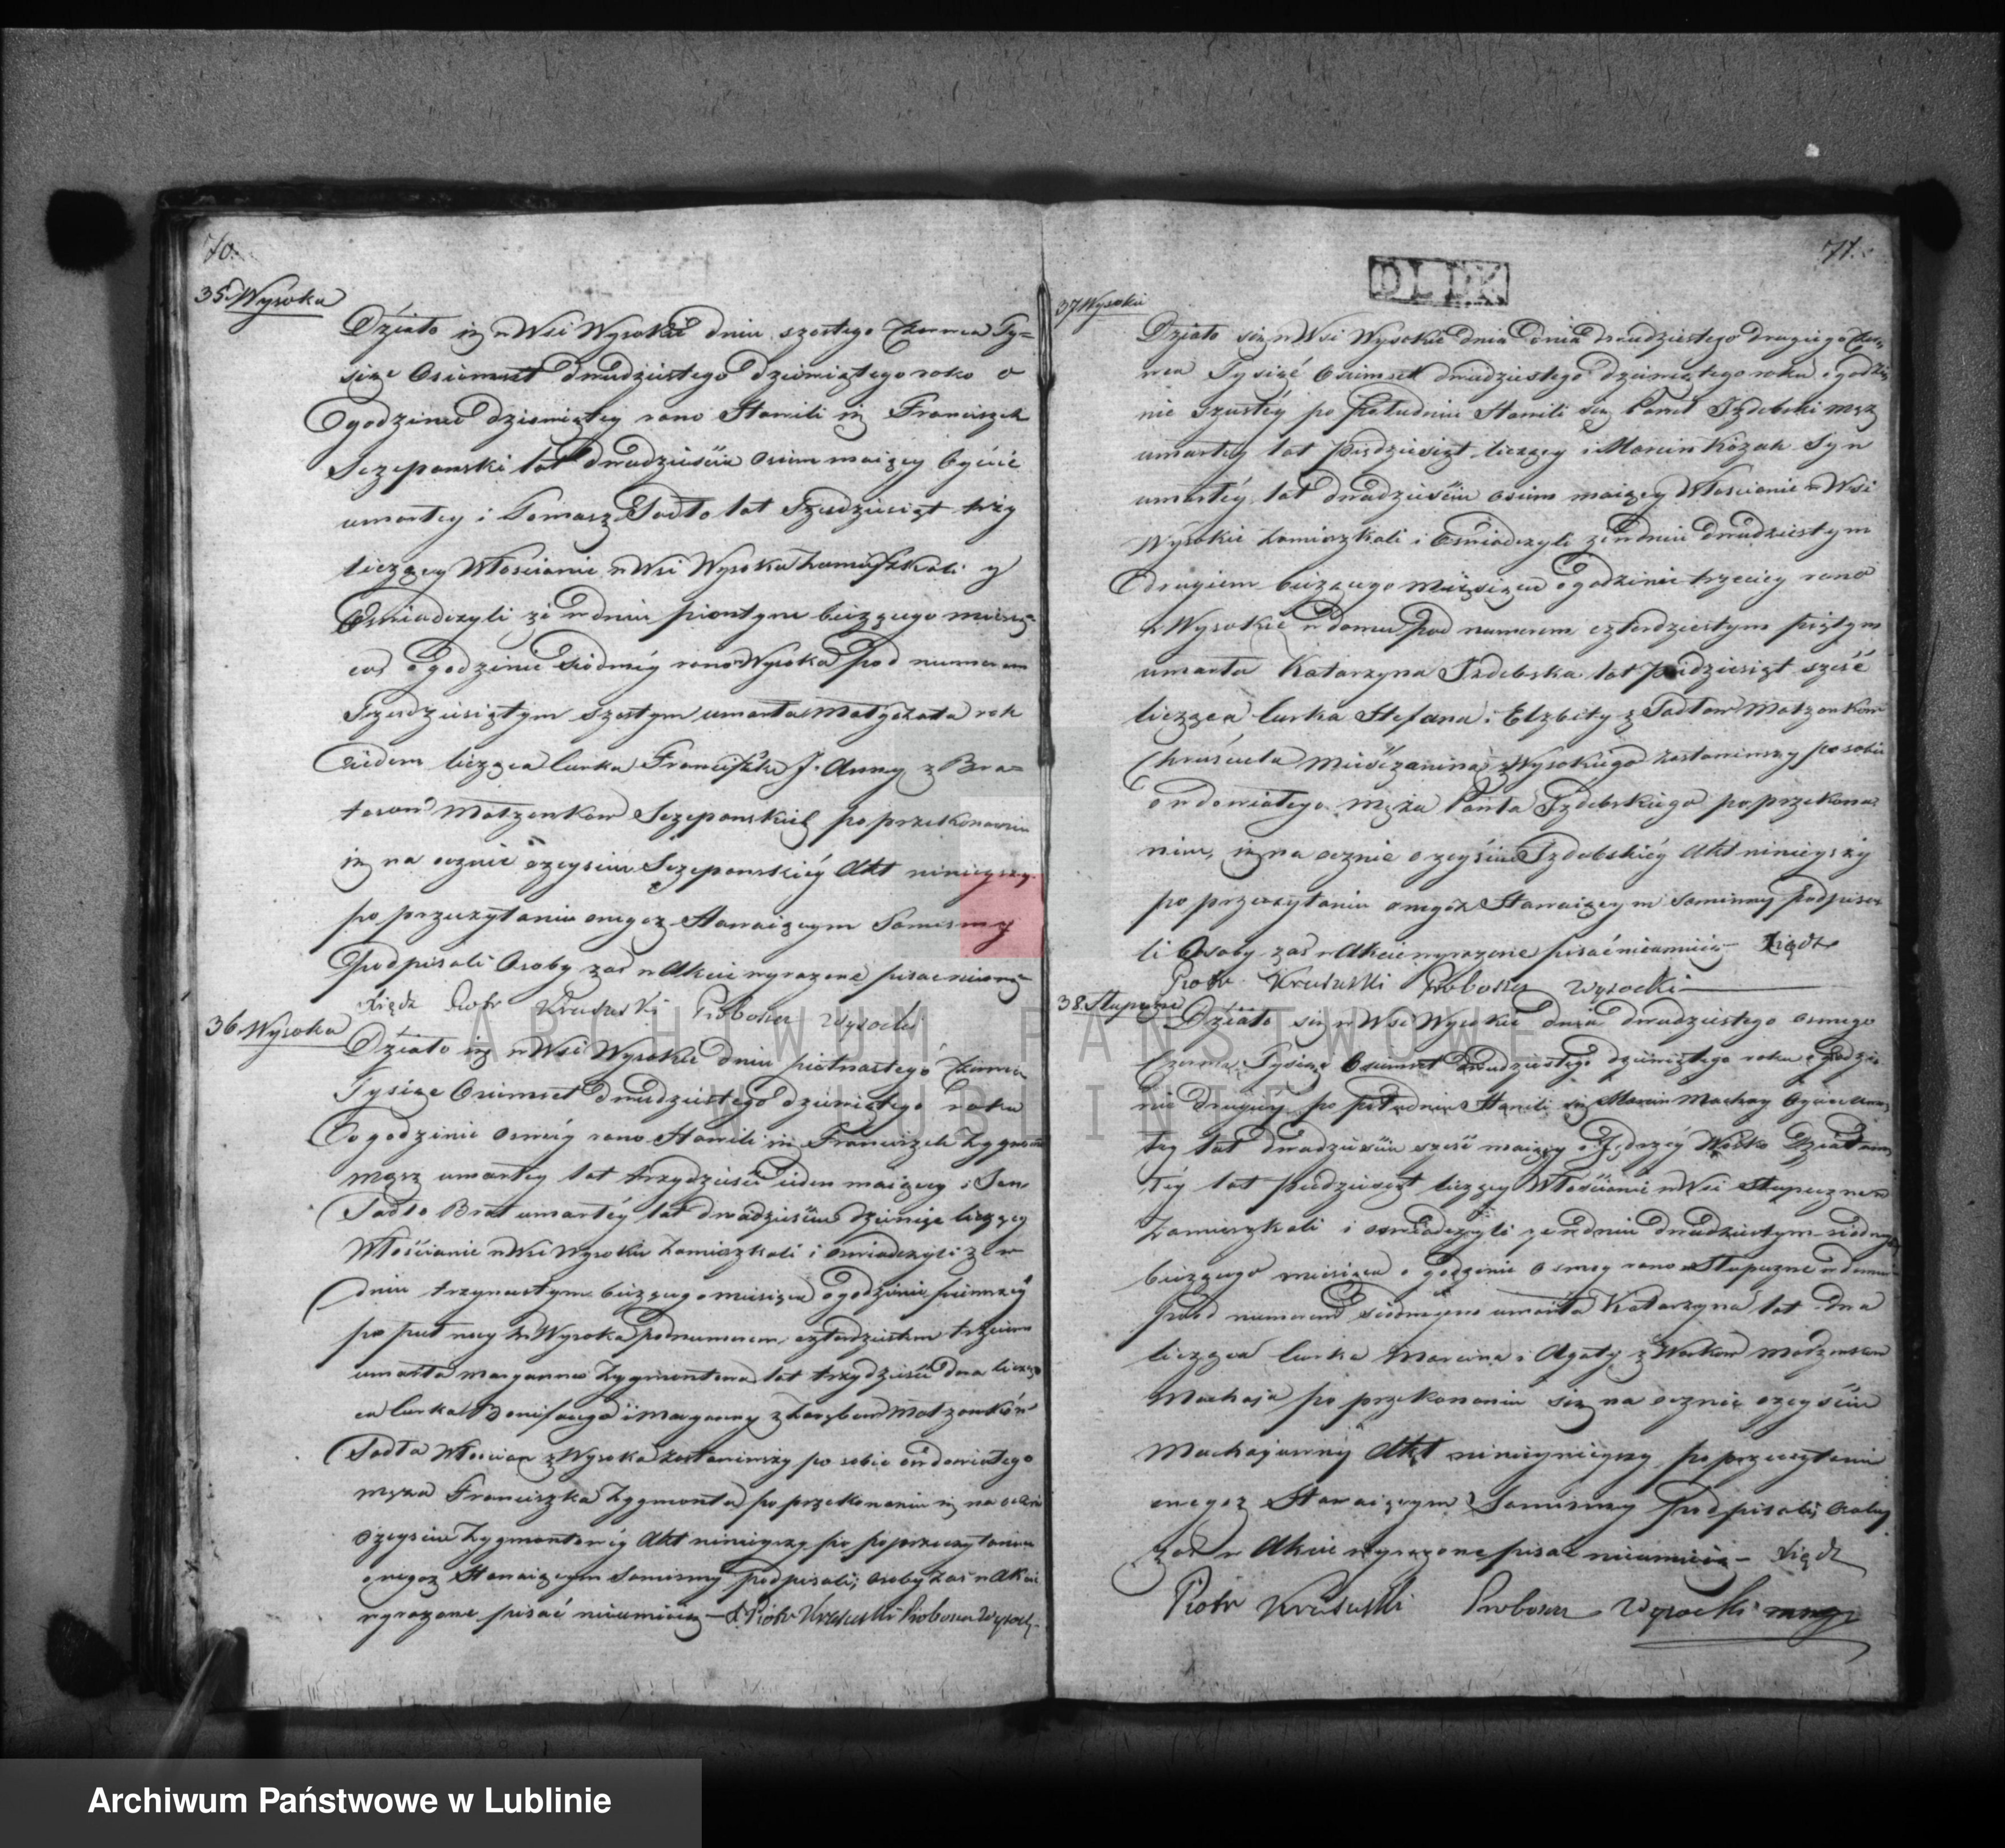 70.
35. Wysoka
Działo się w Wsi Wysokie dniu szostego Czerwca Ty=
siąc Osiemset dwudziestego dziewiątego roko o
Ogodzinie dziewiątey rano Stawili się Franciszek
Sczepanski lat dwadzieścia osiem maiący Oycie
umarłey i Tomasz Sadło lat Szesdziesiąt trzy
liczący Włoscianie w Wsi Wysoka Zamieszkali y
Oswiadczyli że w dniu piontym bieżącego miesią-
ca ogodzinie siodmey rano Wysoka pod numerem
Szesdziesiątym szostym umarła Małgorzata rok
ieden licząca Curka Franciszka J. Anny z Bra=
tosow Małżonkow Sczepanskich po przekonaniu
się na ocznie ozeysciu Sczepanskiéy Akt ninieyszy
po przeczytaniu onegoz Stawaiącym Samismy
Podpisali Osoby zas w Akcie wyrazone pisac nieumią
Xiądz Piotr Krasuski Proboszcz Wysocki
36. Wysoka
Działo się w Wsi Wysokie dniu piętnastego Czerwca
Tysiąc Osiemset dwudziestego dziewiątego roku
o godzinie osméy rano Stawili się Franciszek Zygmont
mąsz umarłey lat trzydzieści ieden maiący i Jan
Sadło Brat umarłéy lat dwadzieścia dziewięc liczący
Włościanie w Wsi Wysokie Zamieszkali i oswiadczyli ze w
dniu trzynastym bieżącego miesiąca ogodzinie pierwszéy
po puł nocy w Wysoka pod numerem czterdziestem trzeciem
umarła maryanna Zygmontowa lat trzydzieści dwa licząc
ca Curka Bonifacego i Maryanny z Zarębow Małzonków
Sadła Włoscian z Wysoka zostawiwszy po sobie owdowiałego
męza Franciszka Zygmonta po przekonaniu się na ocznie
ozeysciu Zygmontowéy Akt ninieyszy po poprzeczytaniu
onegoz Stawaiącym Samismy podpisali, osoby zas w Akcie
wyrazone pisać nieumieią — X. Piotr Krasuski Proboszcz Wysocki
71.
DLDK
37 Wysokie
Działo się w Wsi Wysokie dnia dnia dwudziestego drugiego Czer-
wca Tysiąć Osiimset dwudziestego dziewiątego roku o godzi
nie szustéy po Południu Stawili się Paweł Izdebski mąz
umarłey lat piędziesiąt liczący i Marcin Kozak Syn
umarłéy lat dwadzieścia osiem maiący Włoscianie w Wsi
Wysokie Zamieszkali i Oswiadczyli że w dniu dwudziestym
drugiem bieżącego miesiąca ogodzinie trzeciey rano
w Wysokié w domu pod numerem czterdziestym piątym
umarła Katarzyna Izdebska lat pięidziesiąt sześć
licząca Curka Stefana i Elzbiety z Sadłow Małzonkow
Chruściela Mieśczanina z Wysokiego zostawiwszy po sobie
owdowiałego męża Pawła Izdebskiego po przekona=
niu, się na ocznie o zeyściu Izdebskiéy Akt ninieyszy
po przeczytaniu onegoż Stawaiącym Samismy Podpisa
li Osoby zaś w Akcie wyrazone pisać nieumieią — Xiądz
Piotr Krasuski Proboszcz Wysocki —
38. Słupeczne
Działo się w Wsi Wysokié dnia dwudziestego osmego
Czerwca Tysiąc Osiemset dwudziestego dziewiątego roku o godzi
nie drugiéy po południu Stawili się Marcin Machay Oyciec umar
łey lat dwadzieścia sześć maiący i Jędrzéy Wołko Dziad umar
łéy lat piedziesiąt liczący Włościanie w Wsi Słupeczne
Zamieszkali i oswiadczyli ze w dniu dwudziestym siodmym
bieżącego miesiąca o godzinie osmey rano w Słupeczne w domu
pod numerem siodmym umarła Katarzyna lat dwa
licząca Curka Marcina i Agaty z Wołkow małzonkow
Machaja po przekonaniu się na ocznie ozeyściu
Machajowny Akt ninieynieyszy po przeczytaniu
onegoz Stawaiącym Samismy Podpisali, osoby
zas w Akcie wyrazone pisac nieumieia — Xiądz
Piotr Krasuski Proboszcz Wysocki mp
ARCHIWUM PAŃSTWOWE
W LUBLINIE
Archiwum Państwowe w Lublinie